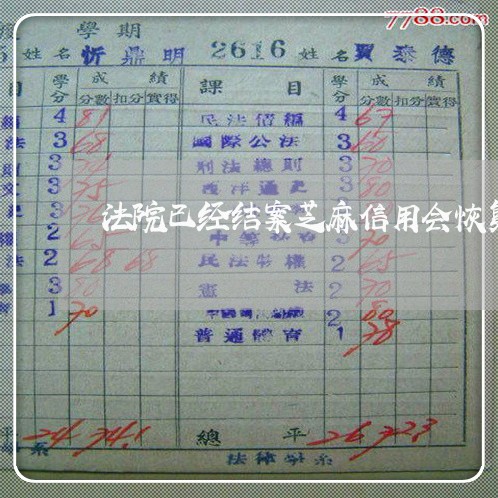 7788.com
度 學期
5 姓名 忻鼎明 2616 姓名 賈泰德
目 學分 成績 課目 學分 成績
分數 扣分 實得 分數 扣分 實得
編 4 81 民法債編 4 67
法 3 68 國際公法 3 60
則 3 刑法總則 3 70
文 3 75 西洋通史 3 80
史 3 3
法院已经结案芝麻信用会恢复
2 65 3 70
權 2 68 68 民法物權 2 65
法 3 80 憲法 2 70
育 1 70 2 80
普通體育 1 78
平 24 74.1 總平 26 72.3
系 法律學系